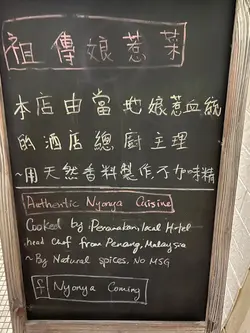 祖傳娘惹菜
本店由當地娘惹血統
的酒店總廚主理
~用天然香料製作不加味精
Authentic Nyonya Cuisine
Cooked by Peranakan, local Hotel
head chef from Penang, Malaysia
~ By Natural spices, No MSG
Nyonya Coming